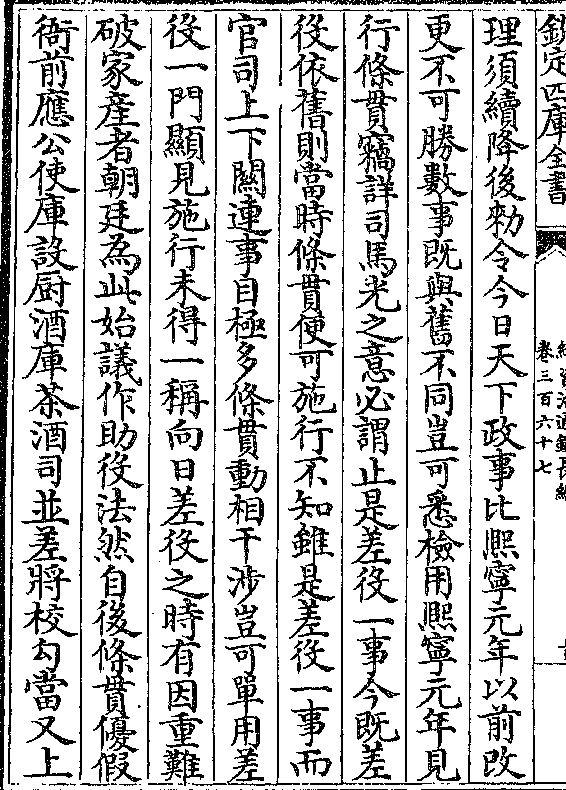 欽定四庫全書
卷三百六十七
理須續降後勑令今日天下政事比熙寧元年以前改
更不可勝數事既與舊不同豈可悉檢用熙寧元年見
行條貫竊詳司馬光之意必謂止是差役一事今既差
役依舊則當時條貫便可施行不知雖是差役一事而
官司上下關連事目極多條貫動相干涉豈可單用差
役一門顯見施行未得一稱向日差役之時有因重難
破家産者朝廷為此始議作助役法然自後條貫優假
衙前應公使庫設厨酒庫茶酒司並差將校勾當又上